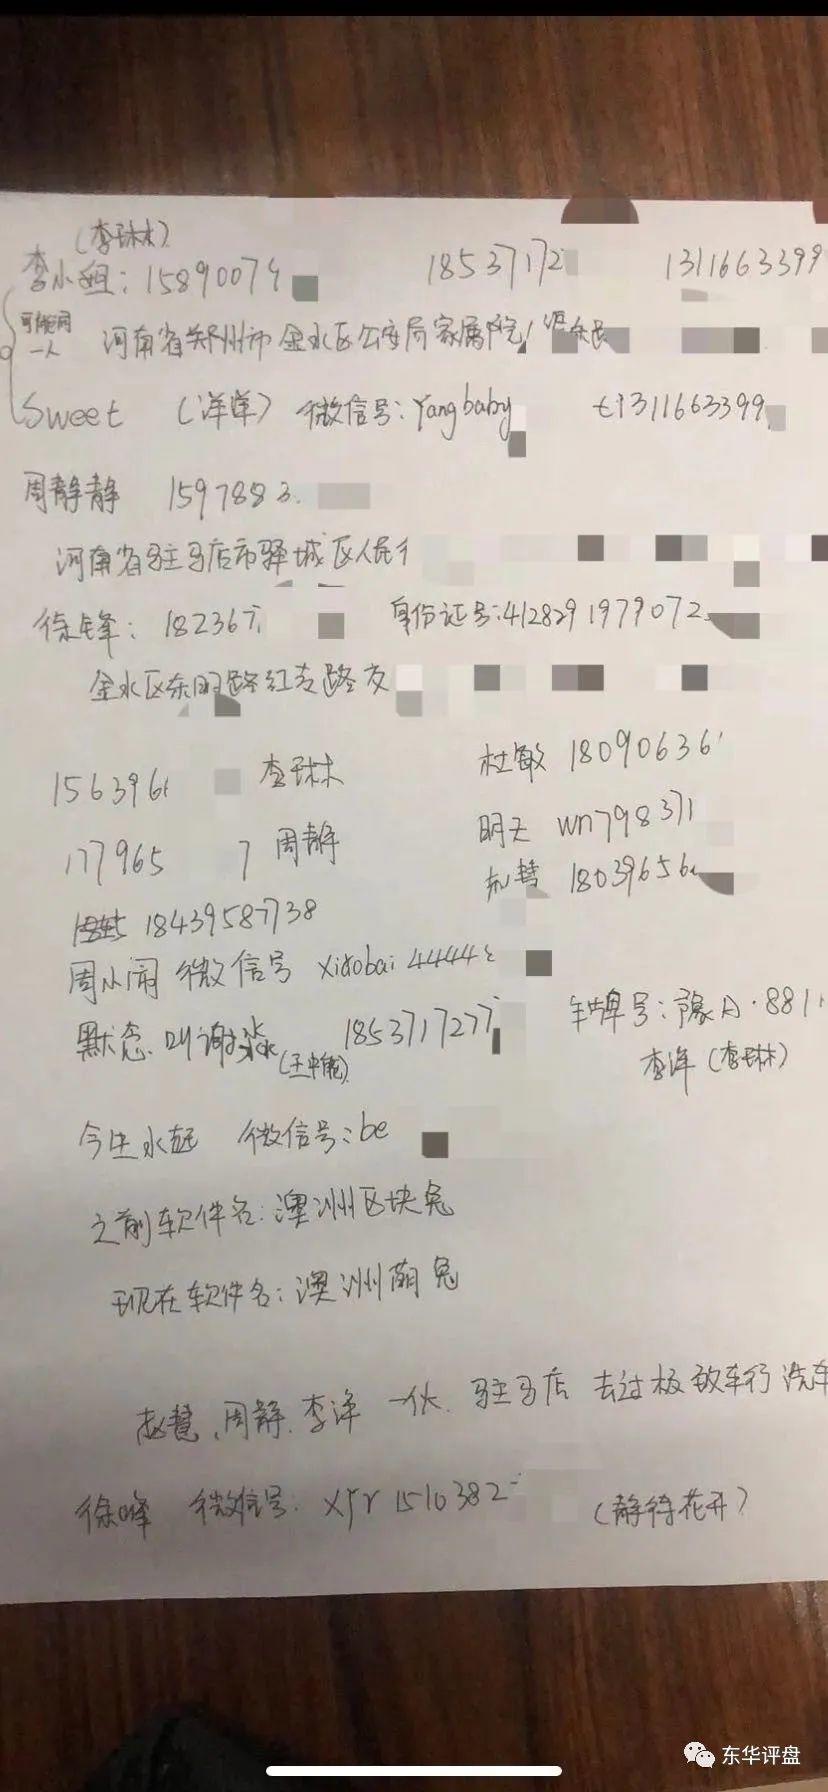 (李琳林)
李小姐：15890074 18537172 1311663399
可能同一人 河南省郑州市金水区公安局家属院1
Sweet (洋洋) 微信号：Yangbaby t1311663399
周静静 1597883
河南省驻马店市驿城区人民
徐锋：182367 身份证号：4128291979072
金水区东明路红专路交
1563961 李琳林 杜敏 18090636
177965 7 周静 明天 wn798371
18039656
18439587738
周小闹 微信号 xiaobai4444
默态 叫谢 (王中龍) 185371727 车牌号：豫A·881
李洋 (李琳林)
今生水起 微信号：be
之前软件名：澳洲区块兔
现在软件名：澳洲萌兔
赵慧、周静、李洋 一伙. 驻马店 去过板敌车行洗车
徐峰 微信号：xfr1510382 (静待花开)
东华评盘